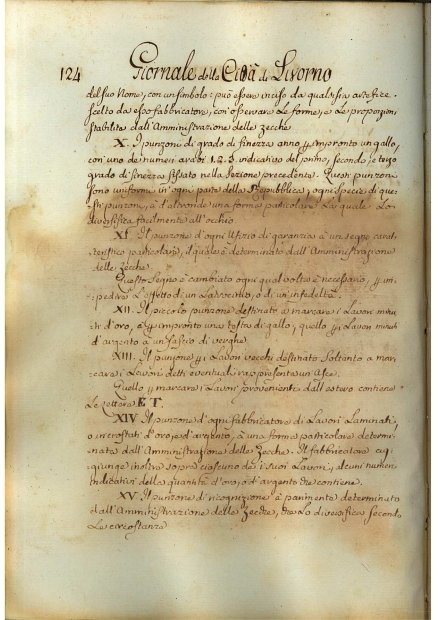 124 Giornale della Città di Livorno
del suo Nome, con un simbolo: può essere inciso da qualsisia artefice
scelto da esso fabbricatore, con osservare Le forme, e Le proporzioni
stabilite dall'Amministrazione delle Zecche
X. I punzoni di grado di finezza anno p impronto un gallo,
con uno de numeri arabi 1. 2. 3 indicativo del primo, secondo, e terzo
grado di finezza fissato nella Sezione precedente. Questi punzoni
sono uniformi in ogni parte della Repubblica, ogni Specie di que-
sti punzoni, à d'altronde una forma particolare La quale Lo
diversifica facilmente all'occhio
XI Il punzone d'ogni Ufizio di garanzia à un segno carat-
teristico particolare, il quale è determinato dall'Amministrazione
delle Zecche
Questo Segno è cambiato ogni qual volta è necessario, p im-
pedire L'effetto di un Latrocinio, o di un'infedeltà.
XII. Il piccolo punzone destinato a marcare i Lavori minu-
ti d'oro, à p impronto una testa di gallo, quello p i Lavori minuti
d'argento à un fascio di verghe.
XIII. Il punzone p i Lavori vecchi destinato Soltanto a mar-
care i Lavori detti eventuali rappresenta un'Asce
Quello p marcare i Lavori provenienti dall'estero contiene
Le Lettere E T.
XIV Il punzone d'ogni fabbricatore di Lavori Laminati,
o incrostati d'oro, o d'argento, à una forma particolare determi-
nata dall'Amministrazione delle Zecche. Il fabbricatore ag-
giunge inoltre sopra ciascuno de i suoi Lavori, alcuni numeri
indicativi della quantità d'oro, o d'argento che contiene.
XV Il punzone di ricognizione è parimente determinato
dall'Amministrazione delle Zecche, che Lo diversifica secondo
Le circostanze